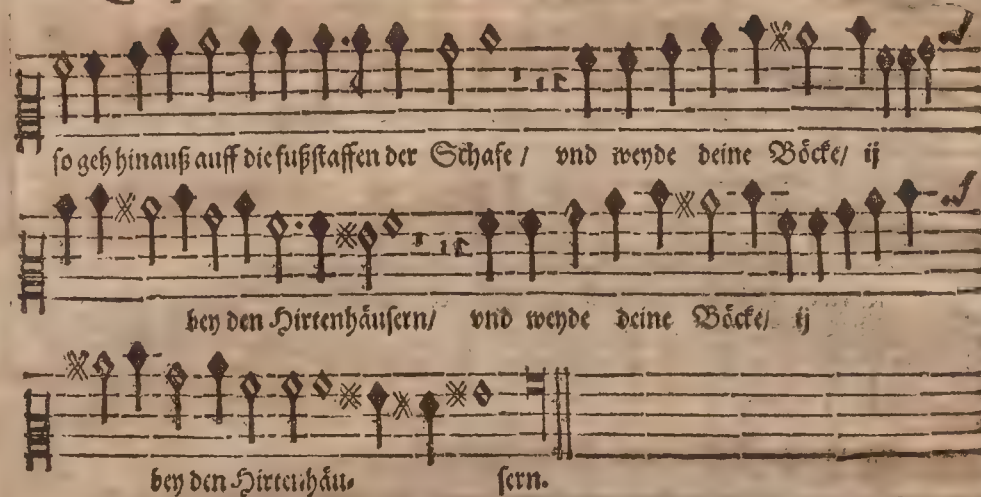 so geh hinauß auff die fußstaffen der Schafe / vnd weyde deine Böcke / ij
bey den Hirtenhäusern / vnd weyde deine Böcke / ij
bey den Hirtenhäu- sern.